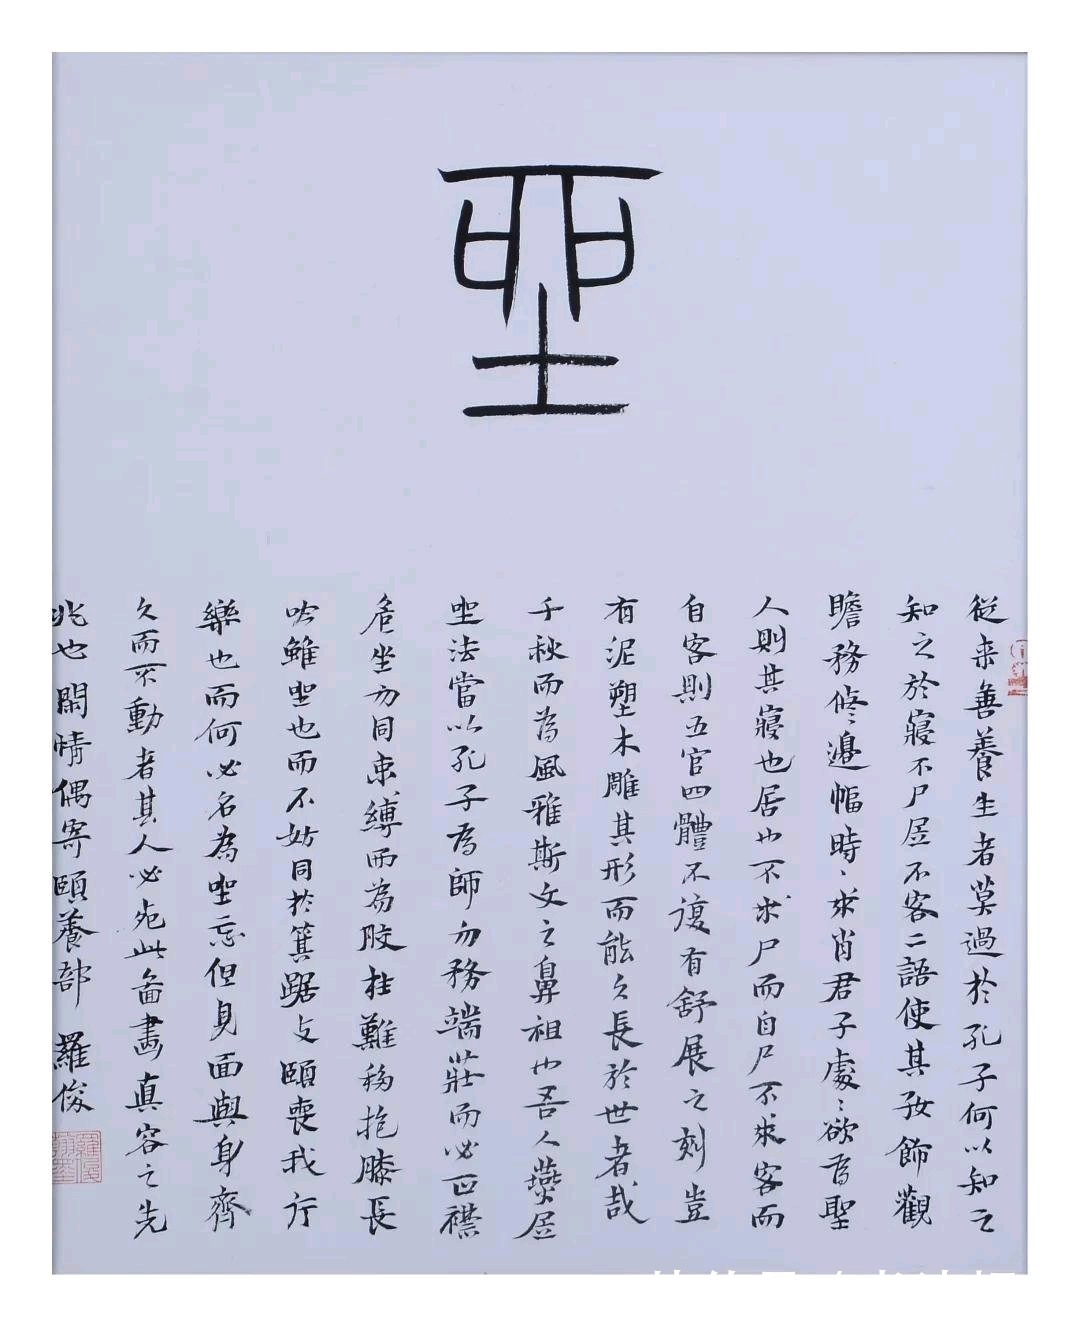 坐
從来善養生者莫過於孔子何以知之
知之於寢不尸居不客二語使其好飾觀
瞻務修邊幅時〻求肖君子處〻欲為聖
人則其寢也居也不求尸而自尸不求客而
自客則五官四體不復有舒展之刻豈
有泥塑木雕其形而能久長於世者哉
千秋而為風雅斯文之鼻祖也吾人燕居
坐法當以孔子為師勿務端莊而必正襟
危坐勿同束縛而為膠柱難移抱膝長
吟雖坐也而不妨同於箕踞支頤喪我行
樂也而何必名為坐忘但見面與身齊
久而不動者其人必死此圖畫真容之先
兆也閑情偶寄頤養部 羅俊